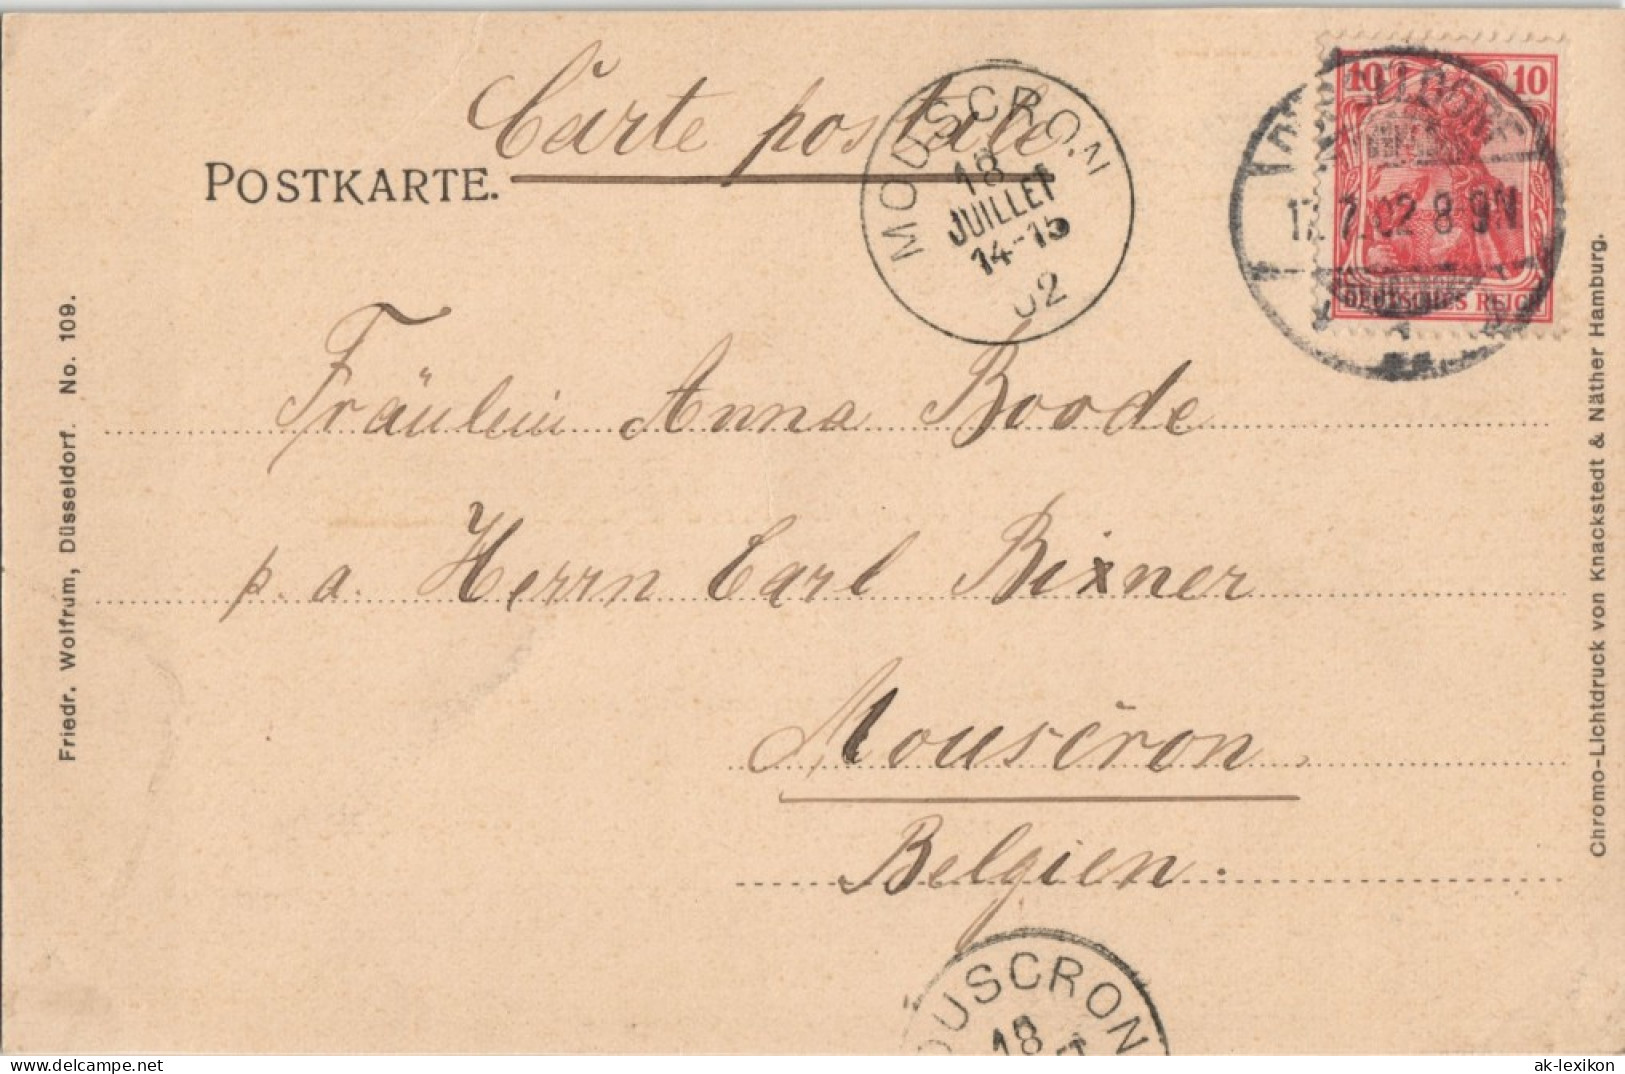 Carte postale
POSTKARTE.
MOUSCRON
18
JUILLET
14-15
02
10 10
17.7.02 8-9N
DEUTSCHES REICH
Fräulein Anna Boode
p. a. Herrn Carl Bixner
Mouscron.
Belgien.
OUSCRON
18
Friedr. Wolfrum, Düsseldorf. No. 109.
Chromo-Lichtdruck von Knackstedt & Näther Hamburg.
ansichtskarten-lexikon.de